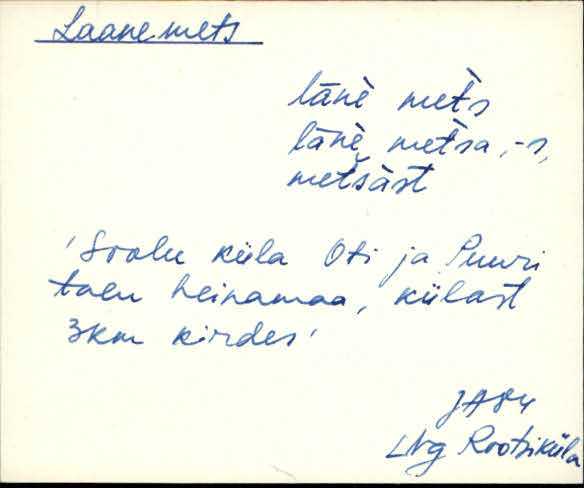 Laanemets
lānè met̀s
lānè met̀sa, -s,
metsàst
'Soolu küla Oti ja Puuri
talu heinamaa, külast
3km kirdes'
JA84
LNg Rootsiküla